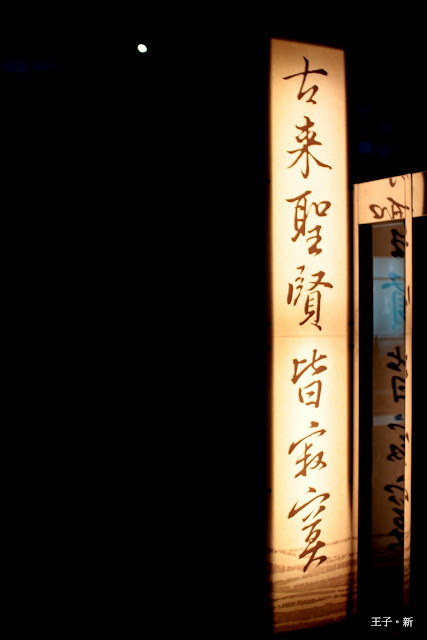 古来聖賢皆寂寞
王子。新